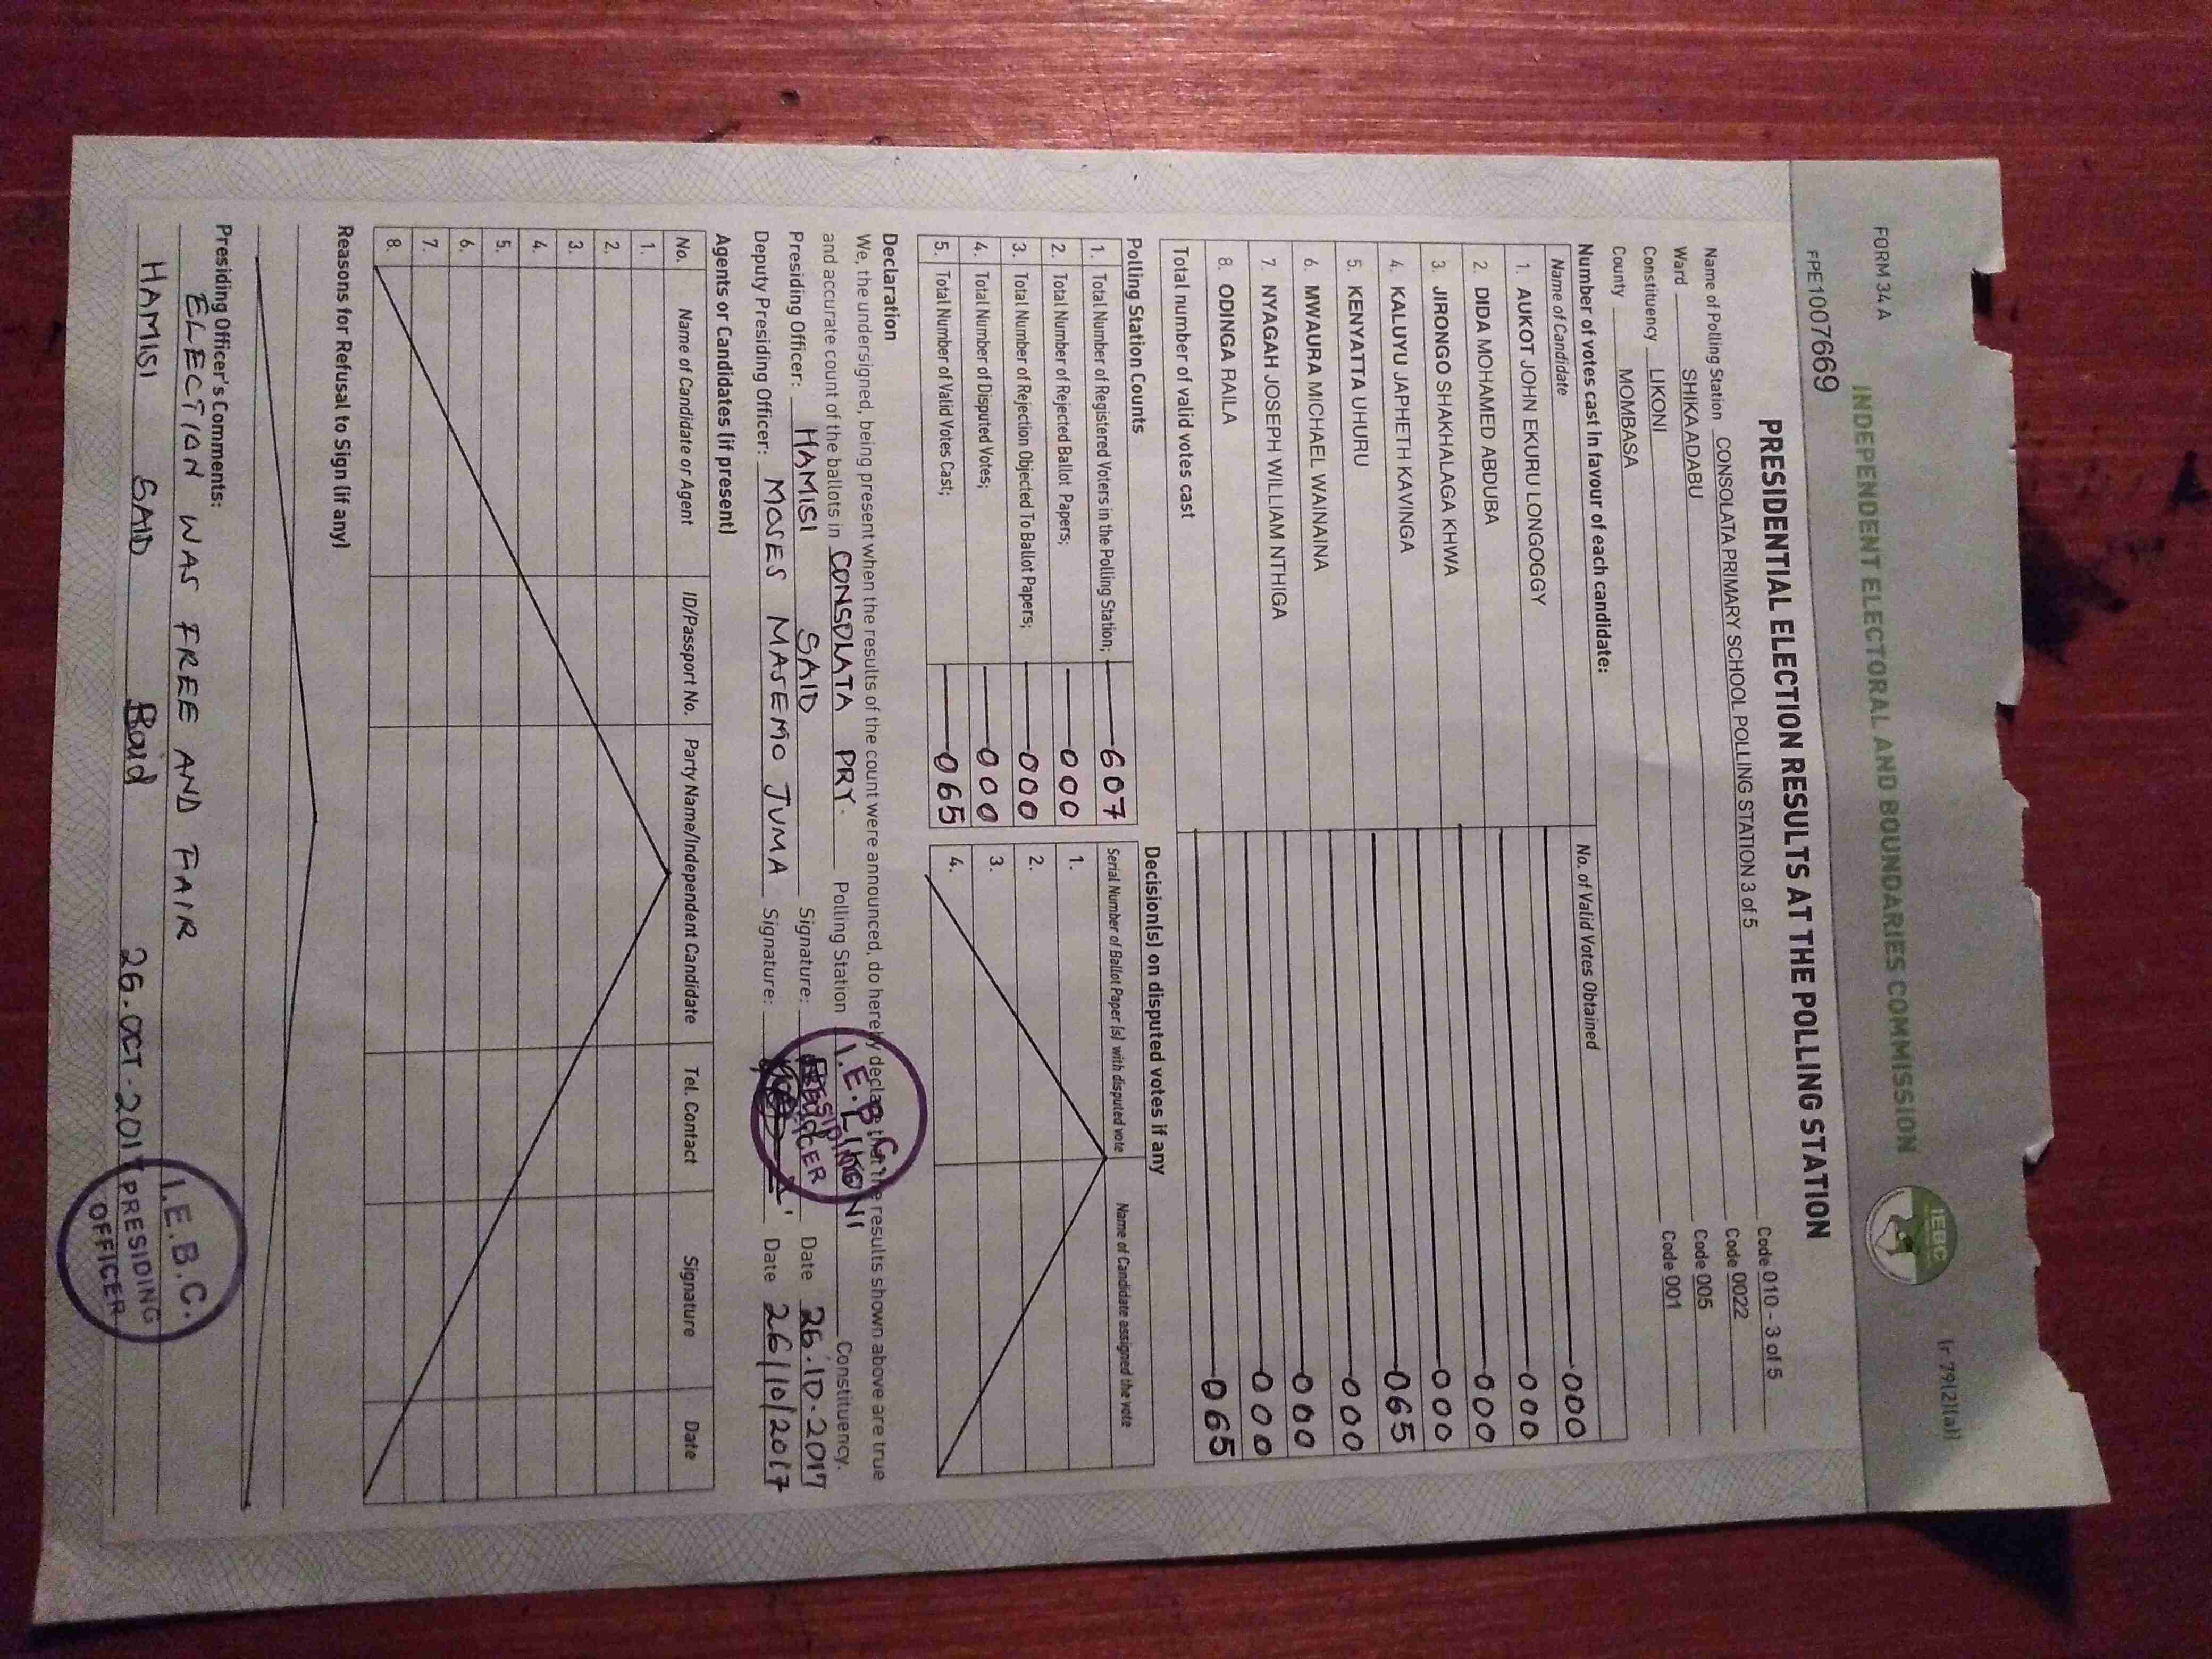 FORM 34 A
(r 79(2)(a))
INDEPENDENT ELECTORAL AND BOUNDARIES COMMISSION
IEBC
FPE1007669
PRESIDENTIAL ELECTION RESULTS AT THE POLLING STATION
Name of Polling Station CONSOLATA PRIMARY SCHOOL POLLING STATION 3 of 5 Code 010 - 3 of 5
Ward SHIKA ADABU Code 0022
Constituency LIKONI Code 005
County MOMBASA Code 001
Number of votes cast in favour of each candidate:
Name of Candidate No. of Valid Votes Obtained
1. AUKOT JOHN EKURU LONGOGGY 000
2. DIDA MOHAMED ABDUBA 000
3. JIRONGO SHAKHALAGA KHWA 000
4. KALUYU JAPHETH KAVINGA 000
5. KENYATTA UHURU 065
6. MWAURA MICHAEL WAINAINA 000
7. NYAGAH JOSEPH WILLIAM NTHIGA 000
8. ODINGA RAILA 000
Total number of valid votes cast 065
Polling Station Counts
1. Total Number of Registered Voters in the Polling Station; 607
2. Total Number of Rejected Ballot Papers; 000
3. Total Number of Rejection Objected To Ballot Papers; 000
4. Total Number of Disputed Votes; 000
5. Total Number of Valid Votes Cast; 065
Decision(s) on disputed votes if any
Serial Number of Ballot Paper (s) with disputed vote Name of Candidate assigned the vote
1.
2.
3.
4.
Declaration
We, the undersigned, being present when the results of the count were announced, do hereby declare that the results shown above are true
and accurate count of the ballots in CONSOLATA PRY. Polling Station LIKONI Constituency.
Presiding Officer: HAMISI SAID Signature: Date 26.10.2017
Deputy Presiding Officer: MOSES MASEMO JUMA Signature: Date 26/10/2017
I.E.B.C.
PRESIDING
OFFICER
Agents or Candidates (if present)
No. Name of Candidate or Agent ID/Passport No. Party Name/Independent Candidate Tel. Contact Signature Date
1.
2.
3.
4.
5.
6.
7.
8.
Reasons for Refusal to Sign (if any)
Presiding Officer's Comments:
ELECTION WAS FREE AND FAIR
HAMISI SAID 26.OCT.2017
I.E.B.C.
PRESIDING
OFFICER